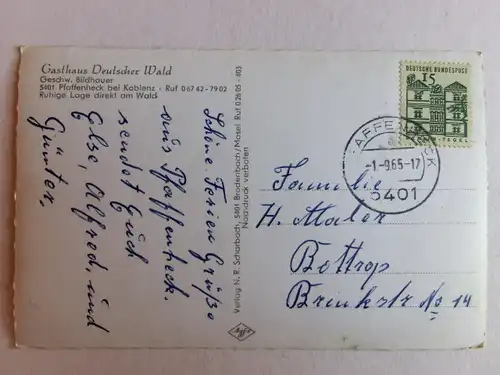 Gasthaus Deutscher Wald
Geschw. Bildhauer
5401 Pfaffenheck bei Koblenz · Ruf 0 67 42 - 79 02
Ruhige Lage direkt am Wald
Schöne Ferien Grüße
aus Pfaffenheck.
sendet Euch
Else, Alfred, und
Günter.
Verlag N. R. Scharbach, 5401 Brodenbach/Mosel Ruf 0 26 05 - 403
Nachdruck verboten
Agfa
DEUTSCHE BUNDESPOST
15
TEGEL
PFAFFENHECK
-1.-9.65-17
5401
Familie
H. Maler
Bottrop
Brinkstr No 14